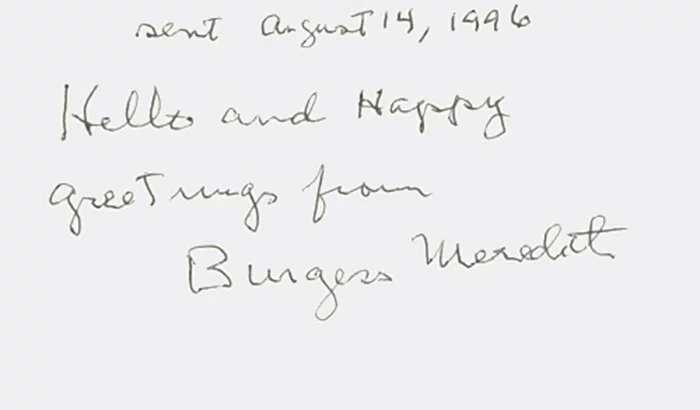 sent August 14, 1996
Hello and Happy
greetings from
Burgess Meredith